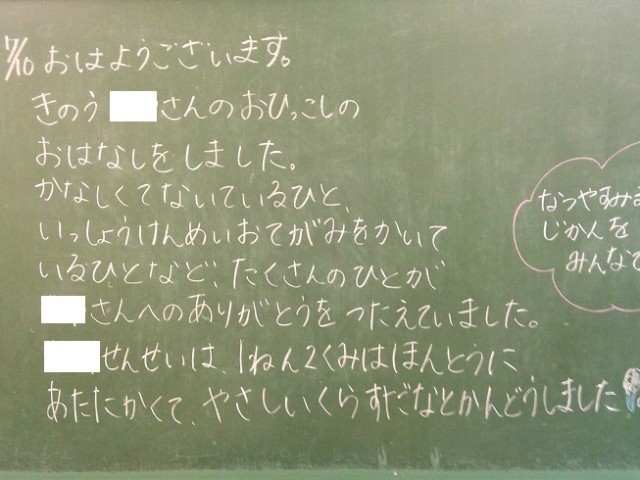 7/10 おはようございます。
きのう さんのおひっこしの
おはなしをしました。
かなしくてないているひと、
いっしょうけんめいおてがみをかいて
いるひとなど、たくさんのひとが
さんへのありがとうをつたえていました。
せんせいは、1ねん2くみはほんとうに
あたたかくて、やさしいくらすだなとかんどうしました
なつやすみま
じかんを
みんなで